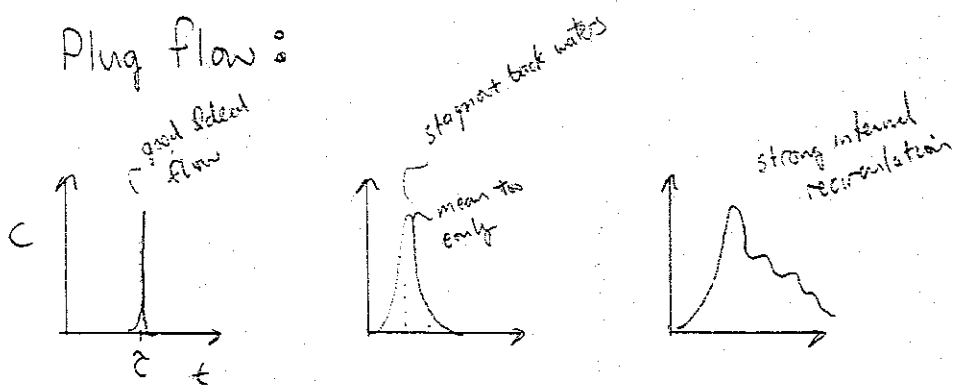 Plug flow:
good Ideal
flow
stagnant back waters
mean too
early
strong internal
recirculation
C
τ
t